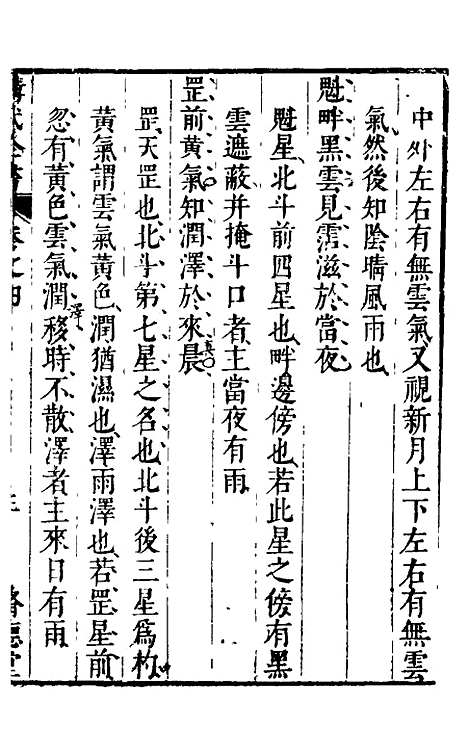 中外左右有無雲氣又視新月上下左右有無雲
氣然後知陰晴風雨也
魁畔黑雲見霑滋於當夜
魁星北斗前四星也畔邊傍也若此星之傍有黑
雲遮蔽并掩斗口者主當夜有雨
罡前黃氣知潤澤於來晨
罡天罡也北斗第七星之名也北斗後三星爲杓
黃氣謂雲氣黃色潤猶濕也澤雨澤也若罡星前
忽有黃色雲氣潤移時不散澤者主來日有雨
澤
卷之四